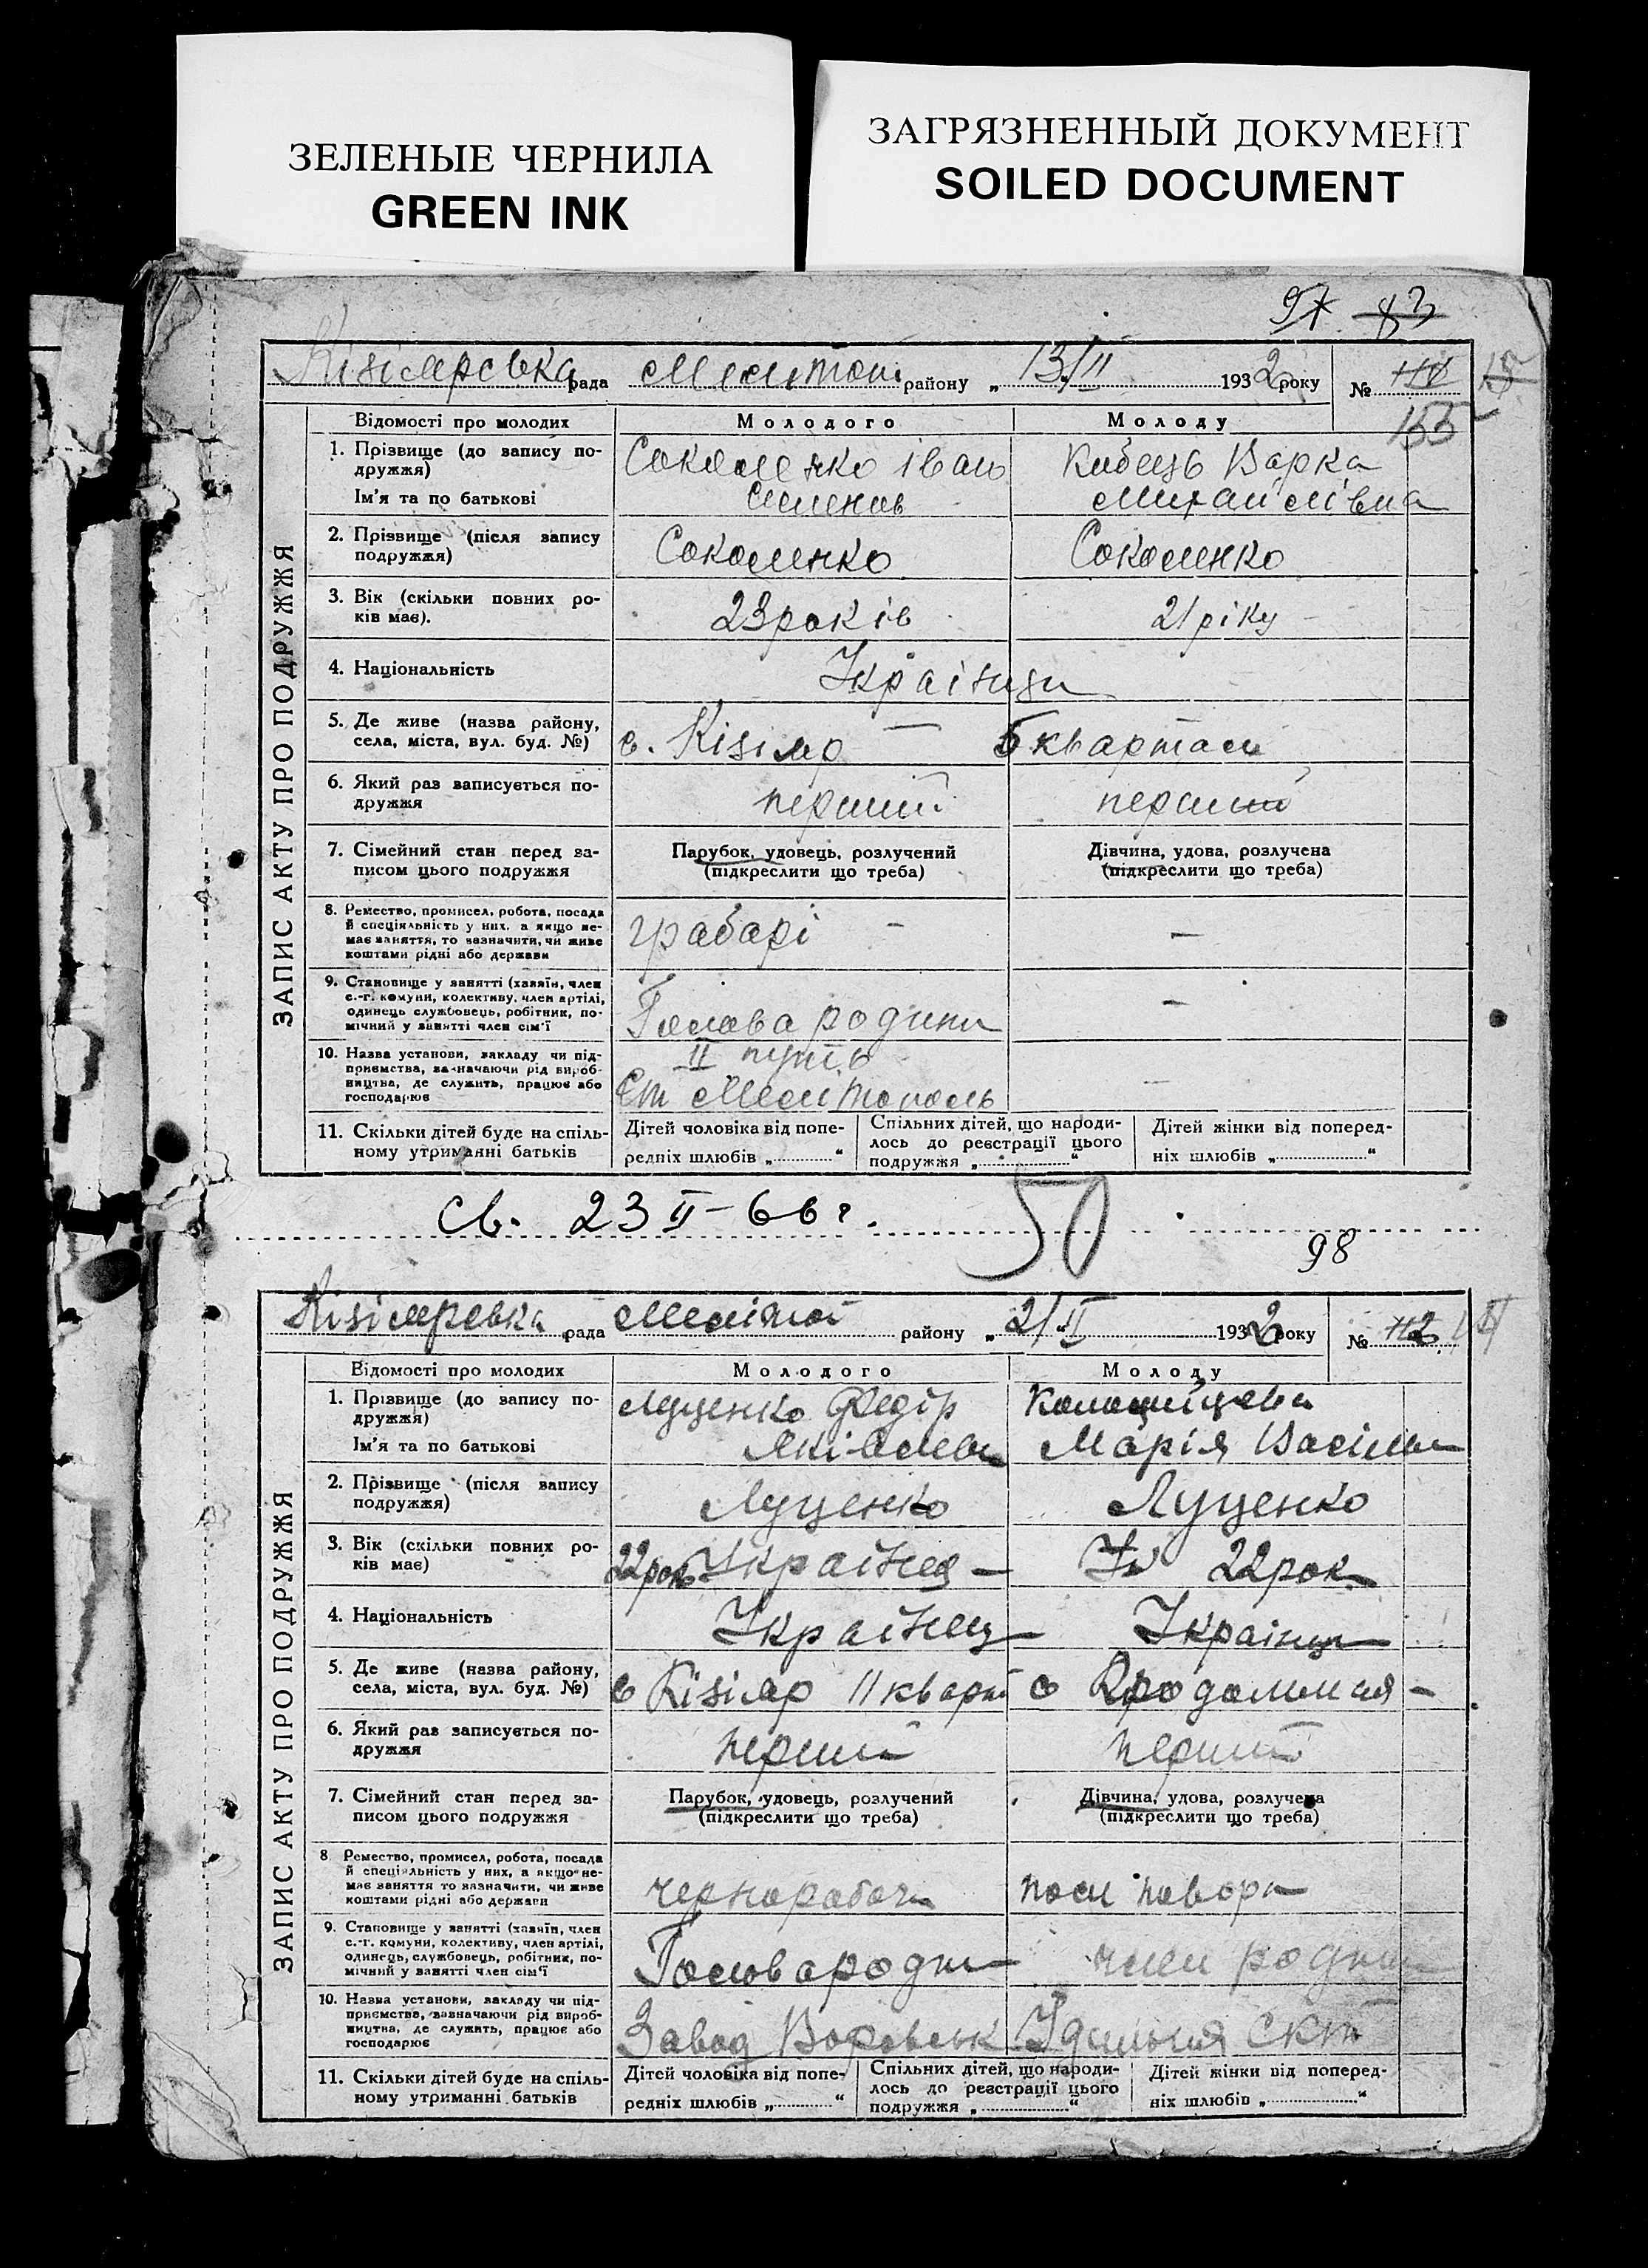 ЗЕЛЕНЫЕ ЧЕРНИЛА
GREEN INK
ЗАГРЯЗНЕННЫЙ ДОКУМЕНТ
SOILED DOCUMENT
97 83
Кізіярська рада Мелитоп району „ 13/II 1932 року №
155
ЗАПИС АКТУ ПРО ПОДРУЖЖЯ
Відомості про молодих Молодого Молоду
1. Прізвище (до запису по-
дружжя)
Ім'я та по батькові
Соколенко Іван
Семенов
Кобець Варка
Михайлівна
2. Прізвище (після запису
подружжя)
Соколенко Соколенко
3. Вік (скільки повних ро-
ків має).
23 років 21 ріку
4. Національність
Українци
5. Де живе (назва району,
села, міста, вул. буд. №)
с. Кізіяр — 5 квартал
6. Який раз записується по-
дружжя
перший перший
7. Сімейний стан перед за-
писом цього подружжя
Парубок, удовець, розлучений
(підкреслити що треба)
Дівчина, удова, розлучена
(підкреслити що треба)
8. Ремество, промисел, робота, посада
й спеціяльність у них, а якщо не-
має заняття, то зазначити, чи живе
коштами рідні або держави
грабарі - —
9. Становище у занятті (хазяїн, член
с.-г. комуни, колективу, член артілі,
одинець службовець, робітник, по-
мічний у занятті член сім'ї
Голова родини —
10. Назва установи, закладу чи під-
приємства, зазначаючи рід вироб-
ництва, де служить, працює або
господарює
II путь
Ст Мелитополь —
11. Скільки дітей буде на спіль-
ному утриманні батьків
Дітей чоловіка від попе-
редніх шлюбів „ “
Спільних дітей, що народи-
лось до реєстрації цього
подружжя „ “
Дітей жінки від поперед-
ніх шлюбів „ “
св. 23 II-66 г. 50
98
Кізіярська рада Меліто району „ 21/II 1932 року № 112
ЗАПИС АКТУ ПРО ПОДРУЖЖЯ
Відомості про молодих Молодого Молоду
1. Прізвище (до запису по-
дружжя)
Ім'я та по батькові
Луценко Федір
Яківлев
Марія Васільв
2. Прізвище (після запису
подружжя)
Луценко Луценко
3. Вік (скільки повних ро-
ків має)
22 рок Українец — 22 рок
4. Національність
Українец Українци
5. Де живе (назва району,
села, міста, вул. буд. №)
с Кізіяр 11 кварт с
6. Який раз записується по-
дружжя
перший перший
7. Сімейний стан перед за-
писом цього подружжя
Парубок, удовець, розлучений
(підкреслити що треба)
Дівчина, удова, розлучена
(підкреслити що треба)
8 Ремество, промисел, робота, посада
й спеціяльність у них, а якщо не-
має заняття то зазначити, чи живе
коштами рідні або держави
чернорабоч пом повора
9. Становище у занятті (хазяїн, член
с.-г. комуни, колективу, член артілі,
одинець, службовець, робітник, по-
мічний у занятті член сім'ї
Голова роди член роди
10. Назва установи, закладу чи під-
приємства, зазначаючи рід вироб-
ництва, де служить, працює або
господарює
Завод Воровськ
11. Скільки дітей буде на спіль-
ному утриманні батьків
Дітей чоловіка від попе-
редніх шлюбів „ “
Спільних дітей, що народи-
лось до реєстрації цього
подружжя „ “
Дітей жінки від поперед-
ніх шлюбів „ “